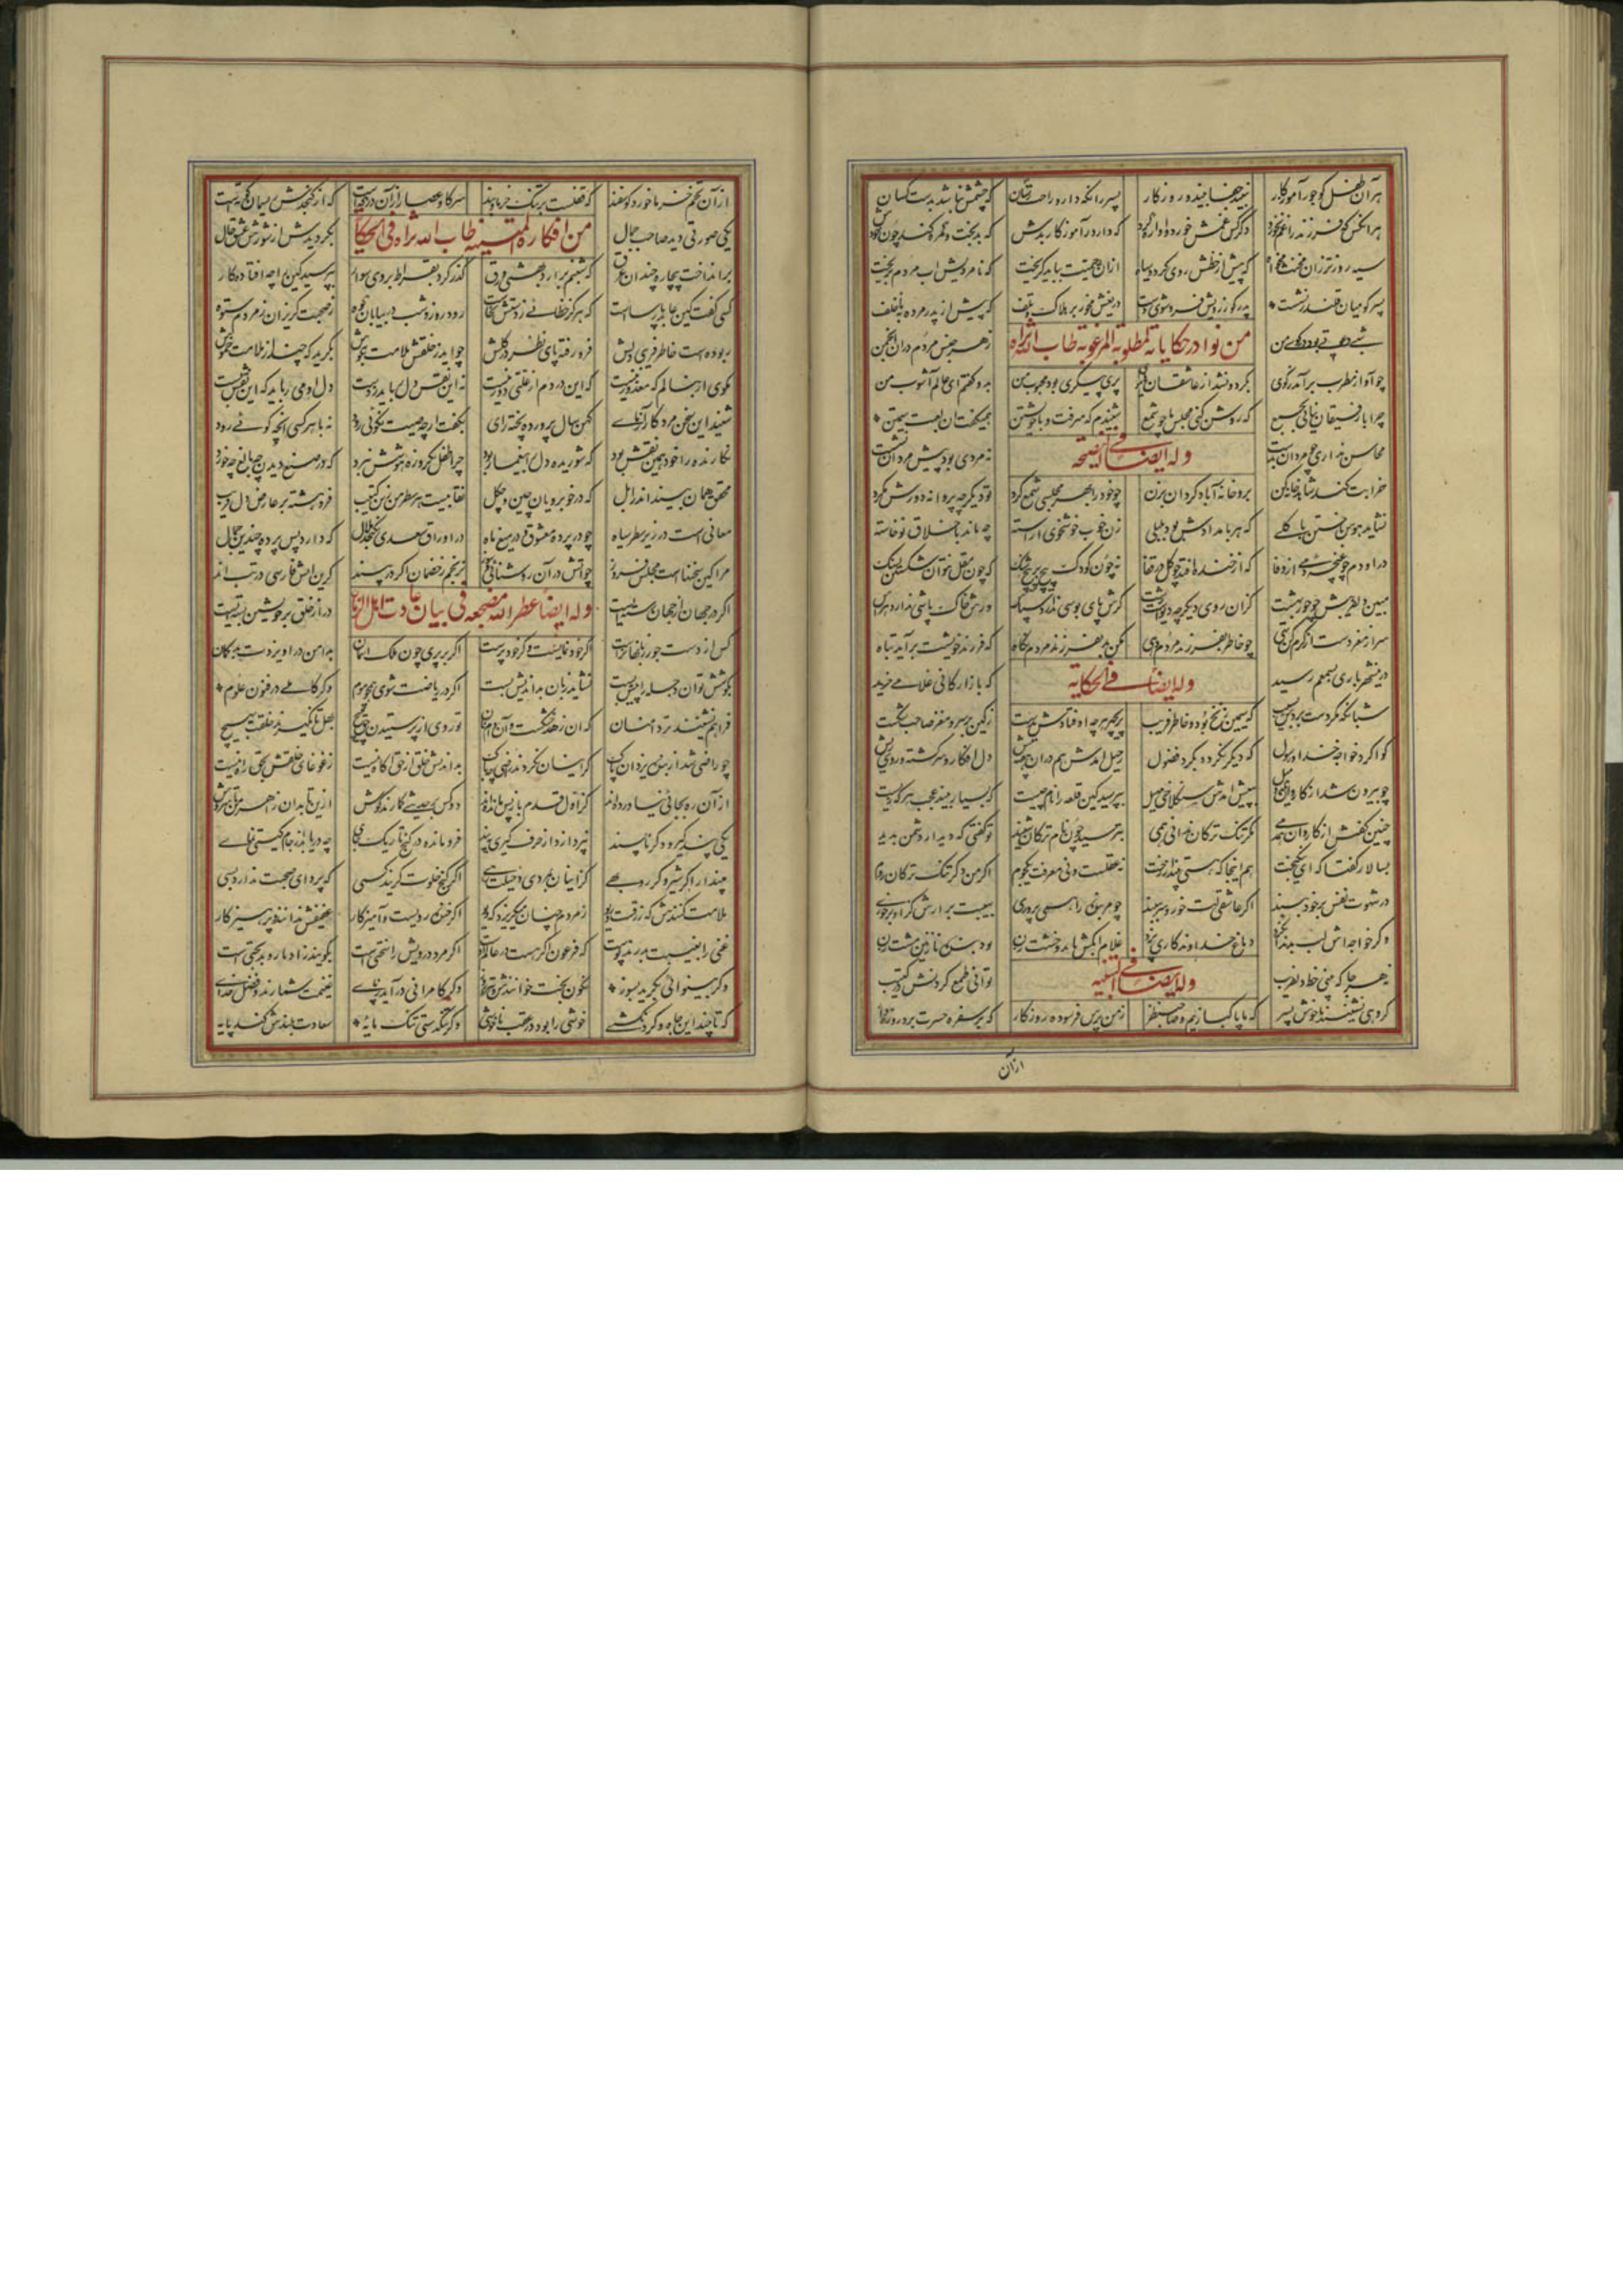 هر آن طفل کو جور آموزکار نبیند جفا بیند از روزکار پسر را نکه دار و راحت رسان که چشمش نباشد بدست کسان
هر آنکس که فرزند را غم نخورد دکر کس غمش خورد و آواره کرد که دار ز آموزکار بدش که بدبخت و کمره کند چون خودش
سیه روزتر زان مخنث مخواه که پیش از خطش روی کردد سیاه ازان بی حمیت بباید کریخت که نامردیش آب مردم بریخت
پسر کو میان قلندر نشست پدر کو ز ویش فرو شوی دست دریغش مخور بر هلاک و تلف که پیش از پدر مرده به ناخلف
شبی دعوتی بود در کوی من ز هر جنس مردم در آن انجمن
من نوادر حکایاته المطلوبه المرغوبه طاب الله ثراه
چو آواز مطرب برآمد ز کوی بکردون شد از عاشقان های هوی پری پیکری بود محبوب من بدو کفتم ای عالم آشوب من
چرا با رفیقان نیائی بجمع که روشن کنی مجلس ما چو شمع شنیدم که میرفت و با خویشتن همیکفت آن لعبت سیمتن
محاسن نداری چو مردان بدست نه مردی بود پیش مردان نشست
وله ایضا فی النصیحه
خرابت کند شاهد خانه کن برو خانه آباد کردان بزن چو خود را بهر مجلسی شمع کرد تو دیکر چو پروانه کردش مکرد
نشاید هوس باختن با کلی که هر بامدادش بود بلبلی زن خوب خوشخوی آراسته چه ماند باخلاق نوخاسته
در او دم چو غنچه دمی از وفا که از خنده افتد چو کل در قفا نه چون کودک پیچ بر پیچ شنک که چون مقل نتوان شکستن بسنک
مبین دلفریبش چو حور بهشت کزان روی دیکر چو غولست زشت کرش پای بوسی ندارد سپاس ورش خاک باشی ندارد هراس
سر از مغز و دست از کرم کن تهی چو خاطر بفرزند مردم دهی مکن بد بفرزند مردم نکاه که فرزند خویشت برآید تباه
در این شهر باری بسمعم رسید که بازارکانی غلامی خرید
وله ایضا فی الحکایه
شبانکه مکر دست بردش بسیب که سیمین زنخ بود و خاطر فریب پریچهره هرچه اوفتادش بدست ز کین بر سر و مغز صاحب شکست
کوا کرد خواجه خدا و رسول که دیکر نکردد بکرد فضول رحیل آمدش هم در آن هفته پیش دل افکار و سر کشته و روی ریش
چو بیرون شد از کازرون یک دو میل بپیش آمدش سنکلاخی مهیل بپرسید کین قلعه را نام چیست که بسیار بیند عجب هر که زیست
چنین کفتش از کاروان همدمی مکر تنک ترکان ندانی همی بترسید چون نام ترکان شنید تو کفتی که دیدار دشمن بدید
بسالار کفتا که ای نیکبخت هم اینجا که هستی بینداز رخت نه عقلست و نی معرفت یکجوم اکر من دکر تنک ترکان روم
در شهوت نفس بر خود ببند اکر عاشقی لت خور و سر ببند چو مر بنده را همی پروری بهیبت برآرش کز او برخوری
وکر خواجه اش لب بدندان کزد دماغ خداوندکاری پزد غلام آبکش باید و خشت زن بود بنده نازنین مشت زن
نه هر جا که بینی خط دلفریب توانی طمع کردنش در کتیب
وله ایضا فی التنبیه
کروهی نشینند با خوش پسر که ما پاکبازیم و صاحبنظر ز من پرس فرسوده روزکار که بر سفره حسرت برد روزه دار
از آن
از آن تخم خرما خورد کوسفند که قفلست بر تنک خرما و بند سر کاو عصار ازان در که است که از کنجدش ریسمان کوته است
یکی صورتی دید صاحب جمال بکردیدش از شورش عشق حال
من افکاره المتینه طاب الله ثراه فی الحکایه
برانداخت بیچاره چندان عرق که شبنم برارد بهشتی ورق کذر کرد بقراط بروی سوار بپرسید کین را چه افتاده کار
کسی کفت کین عابد پارساست که هرکز خطائی ز دستش نخاست رود روز و شب در بیابان و کوه ز صحبت کریزان ز مردم ستوه
ربوده است خاطر فریبی دلش فرو رفته پای نظر در کلش چو آید ز خلقش ملامت بکوش بکرید که چند از ملامت خموش
مکوی ار بنالم که معذور نیست که این دردم از علتی دور نیست نه این نقش دل رباید ز دست دل او می رباید که این نقش بست
شنید این سخن مرد کارآزمای کهن سال پرورده پخته رای بکفت ارچه صیت نکوئی رود نه با هر کسی آنچه کوئی رود
نکارنده را خود همین نقش بود که شوریده دل بیغما ربود چرا طفل یکروزه هوشش نبرد که در صنع دیدن چه بالغ چه خورد
محقق همان بیند اندر ابل که در خوبرویان چین و چکل نقابیست هر سطر من زین کتیب فرو هشته بر عارض دل فریب
معانی است در زیر سطر سیاه چو در پرده معشوق و در میغ ماه در اوراق سعدی نکنجد ملال که دارد پس پرده چندین جمال
مرا کین سخنهاست مجلس فروز چو آتش در آن روشنائی و سوز نرنجم ز خصمان اکر بر طپند کزین آتش پارسی در تب اند
اکر در جهان از جهان رسته ایست در از خلق بر خویشتن بسته ایست
وله ایضا عطر الله مضجعه فی بیان عادت اهل الزمان
کس از دست جور زبانها نرست اکر خودنمایست و کر خودپرست اکر بر پری چون ملک ز آسمان بدامن در آویزدت بدکمان
بکوشش توان دجله را پیش بست نشاید زبان بداندیش بست اکر در ریاضت شوی همچو موم وکر کاملی در فنون علوم
فراهم نشینند تر دامنان که این زهد خشکست و آن دام نان تو روی از پرستیدن حق مپیچ بهل تا نکیرند خلقت بهیچ
چو راضی شد از بنده یزدان پاک کر اینان نکردند راضی چه باک بداندیش خلق از حق آکاه نیست ز غوغای خلقش بحق راه نیست
از آن ره بجائی نیاورده اند که اول قدم باز پس مانده اند دو کس بر حدیثی کمارند کوش ازین تا بدان ز اهرمن تا سروش
یکی پند کیرد دکر ناپسند نپردازد از حرف کیری به پند فرو مانده در کنج تاریک جای چه دریابد از جام کیتی نمای
مپندار اکر شیر و کر روبهی کز اینان بمردی و حیلت رهی اکر کنج خلوت کزیند کسی که پروای صحبت ندارد بسی
ملامت کنندش که زرقست و ریو ز مردم چنان میکریزد که دیو اکر خنده رویست و آمیزکار عفیفش ندانند و پرهیزکار
غنی را بغیبت بدرند پوست که فرعون اکر هست در عالم اوست اکر مرد درویش را سختی است بکویند از ادبار و بدبختی است
وکر بینوائی بکرید بسوز نکون بخت خوانندش و تیره روز وکر کامرانی درآید ز پای غنیمت شمارند و فضل خدای
که تا چند این جاه و کردنکشی خوشی را بود در عقب ناخوشی وکر تنکدستی تنک مایه سعادت بلندش کند پایه